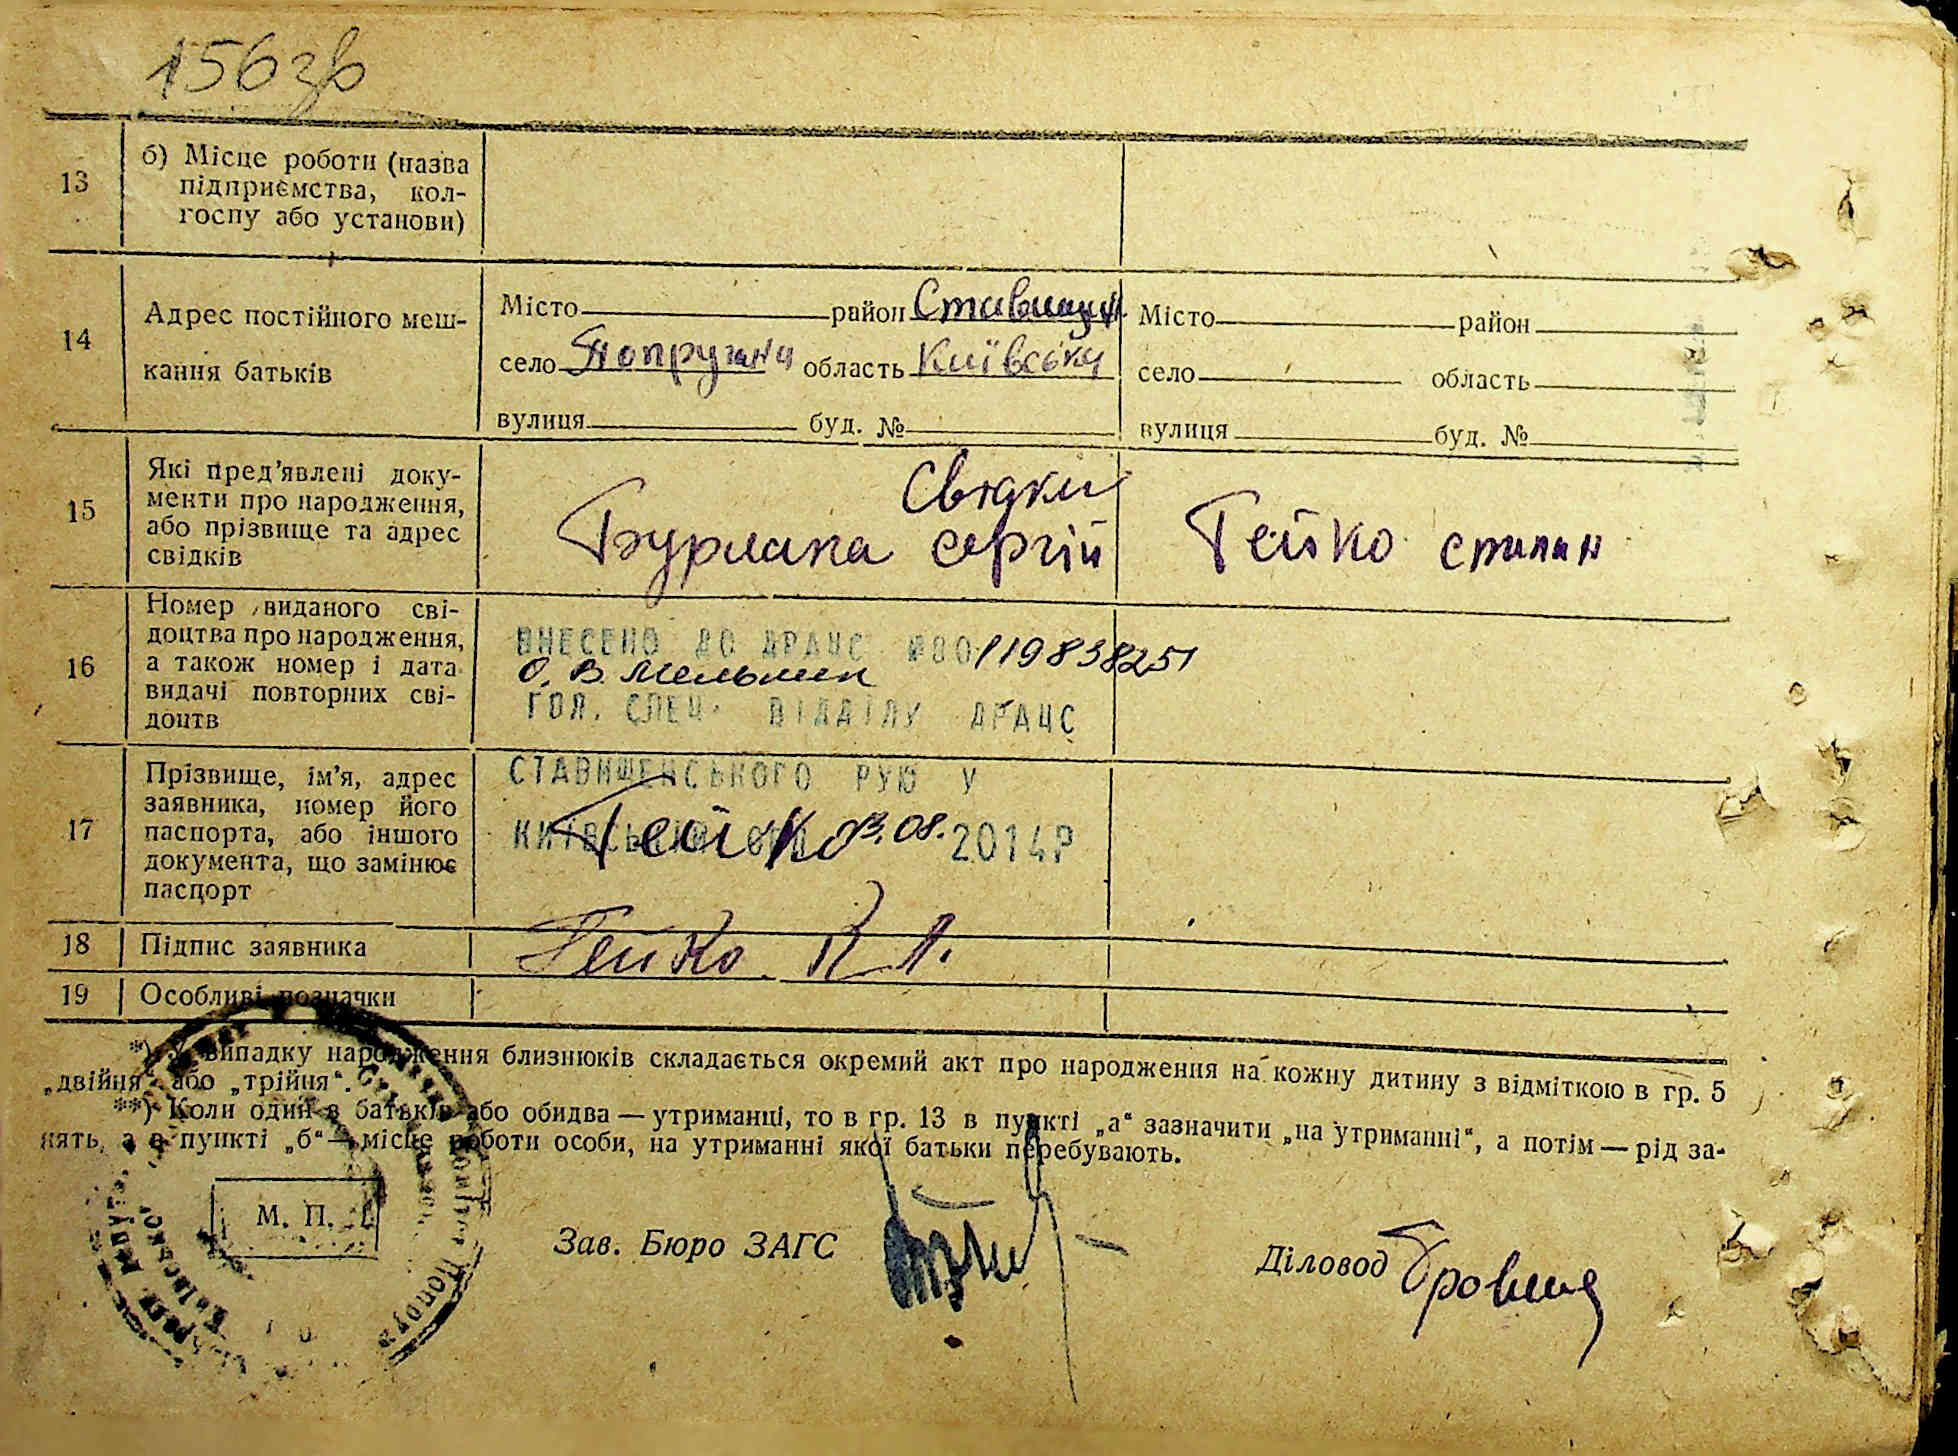 156зв
13
б) Місце роботи (назва
підприємства, кол-
госпу або установи)
14
Адрес постійного меш-
кання батьків
Місто район Ставищан
село Попружна область Київська
вулиця буд. №
Місто район
село область
вулиця буд. №
15
Які пред’явлені доку-
менти про народження,
або прізвище та адрес
свідків
Свідки
Бурлака сергій
Гейко степан
16
Номер виданого сві-
доцтва про народження,
а також номер і дата
видачі повторних сві-
доцтв
ВНЕСЕНО ДО ДРАЦС №00119838251
О. В. Мельник
ГОЛ. СПЕЦ. ВІДДІЛУ ДРАЦС
17
Прізвище, ім’я, адрес
заявника, номер його
паспорта, або іншого
документа, що замінює
паспорт
СТАВИЩЕНСЬКОГО РУЮ У
КИЇВСЬКІЙ 08. 2014Р
Гейко
18
Підпис заявника
Гейко
19
Особливі позначки
*) У випадку народження близнюків складається окремий акт про народження на кожну дитину з відміткою в гр. 5
„двійня“ або „трійня“.
**) Коли один з батьків або обидва — утриманці, то в гр. 13 в пункті „а“ зазначити „на утриманні“, а потім — рід за-
нять, а в пункті „б“ — місце роботи особи, на утриманні якої батьки перебувають.
М. П.
Зав. Бюро ЗАГС
Діловод